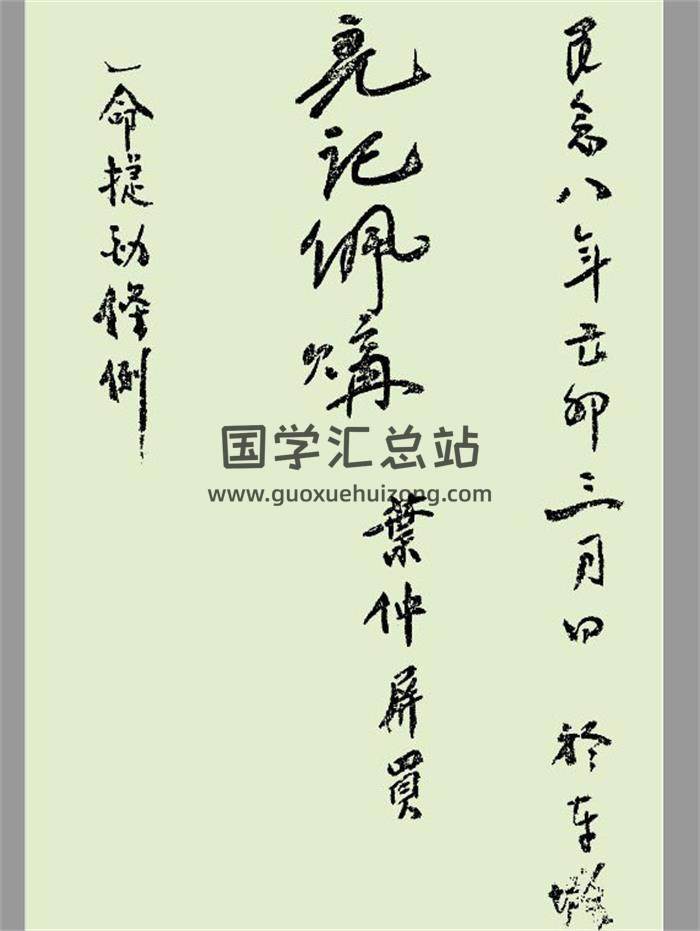 民念八年己卯三月日 於車
亮記佩購 葉仲屏買
一命 條例
国学汇总站
www.guoxuehuizong.com